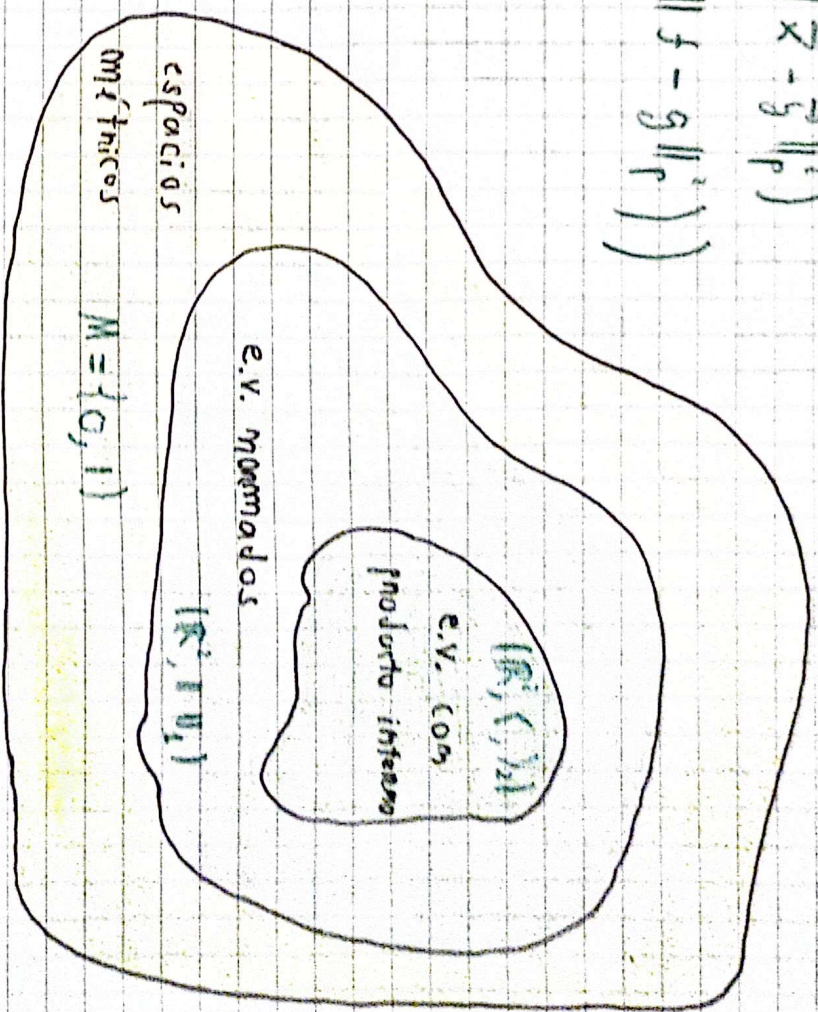 x⃗ - y⃗ ||_p)
|| f - g ||_p ))
espacios
métricos
M = {0, 1}
e.v. normados
(ℝ², || ||₁)
e.v. con
producto interno
(ℝ², ⟨,⟩₂)